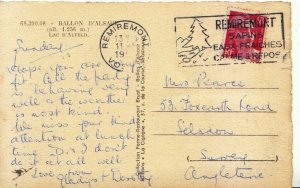 68.210.08 - BALLON D'ALSACE
(alt. 1.256 m.)
LAC D'ALFELD.
REMIREMONT
13
11
19
REMIREMONT
SAPINS
EAUX FRAICHES
CALME & REPOS
Sunday
Hope you are
of Cill. the party
is behaving very
well & the weather
is most kind
We miss your kind
attention at lunch
time. D. & I don't
do it at all well
Love from
Gladys & Dorothy
Mrs. Pearce
53. Foxearth Road
Selsdon
Surrey
Angleterre